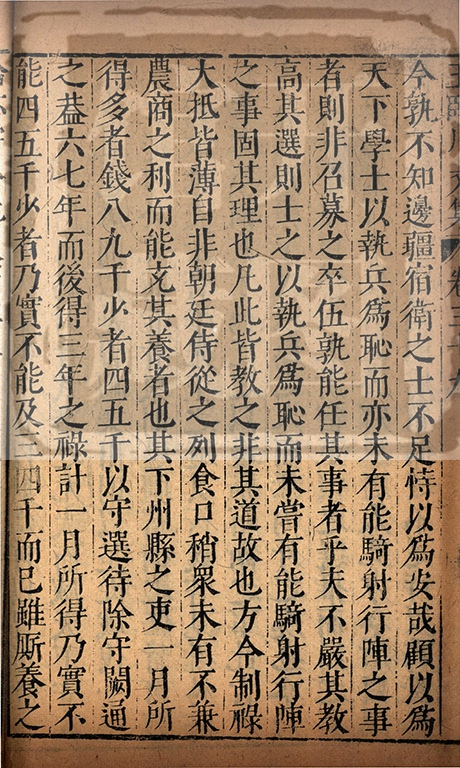 今孰不知邊疆宿衛之士不足恃以爲安哉顧以爲
天下學士以執兵爲恥而亦未有能騎射行陣之事
者則非召募之卒伍孰能任其事者乎夫不嚴其教
高其選則士之以執兵爲恥而未嘗有能騎射行陣
之事固其理也凡此皆教之非其道故也方今制祿
大抵皆薄自非朝廷侍從之列食口稍衆未有不兼
農商之利而能充其養者也其下州縣之吏一月所
得多者錢八九千少者四五千以守選待除守闕通
之葢六七年而後得三年之祿計一月所得乃實不
能四五千少者乃實不能及三四千而已雖厮養之